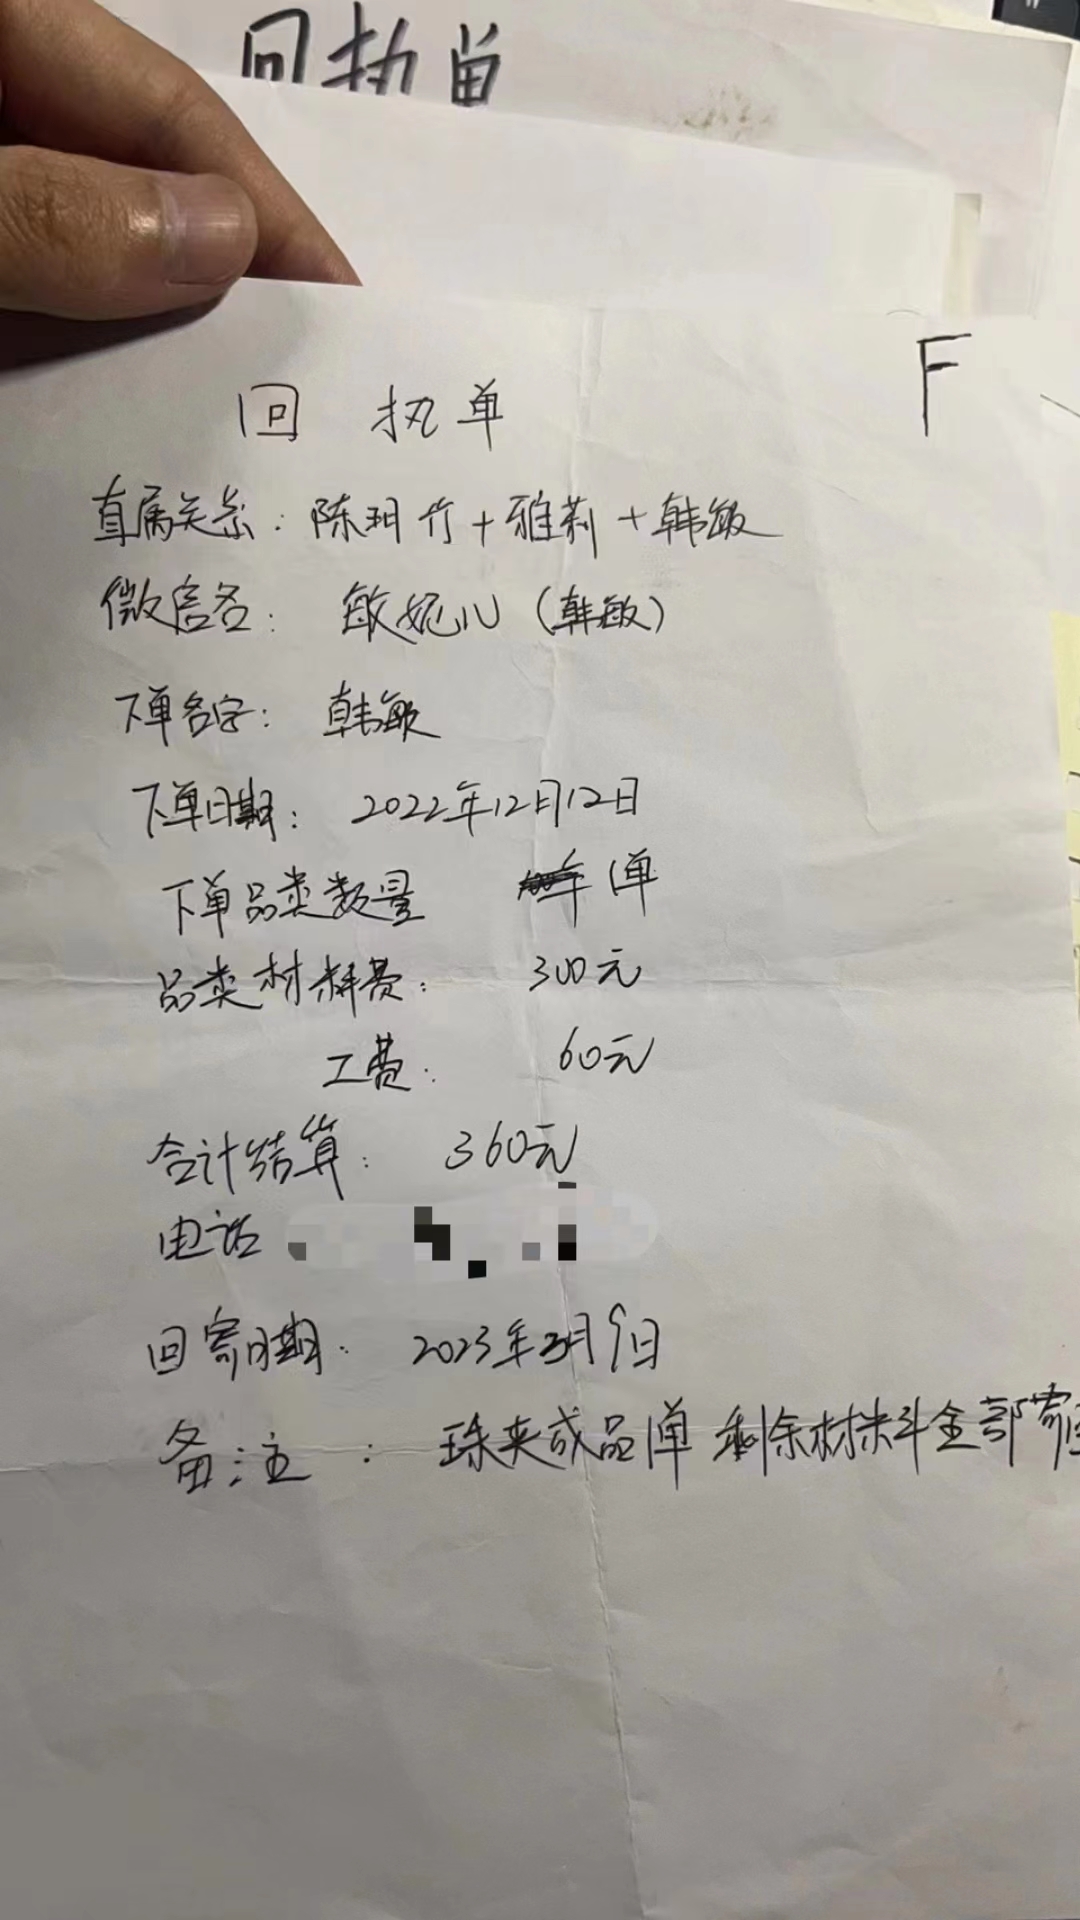 回执单
F
回 执单
直属关系：陈玥竹+雅莉+韩敏
微信名：敏妮儿（韩敏）
下单名字：韩敏
下单日期：2022年12月12日
下单品类数量 1单
品类材料费：300元
工费：60元
合计结算：360元
电话
回寄日期：2023年3月9日
备注：珠夹成品1单 剩余材料全部寄